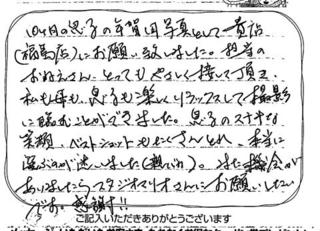 10ヶ月の息子の年賀用写真として一貫店
(福島店)にお願い致しました。担当の
おねえさん、とってもやさしく接して頂き
私も母も、息子も楽しくリラックスして撮影
に臨むことができました。息子のステキな
笑顔、ベストショットもたくさんとれ、本当に
選ぶのが迷いました(想い)。また機会が
ありましたらスタジオマリオさんにお願いしたい
です。感謝!!
ご記入いただきありがとうございます